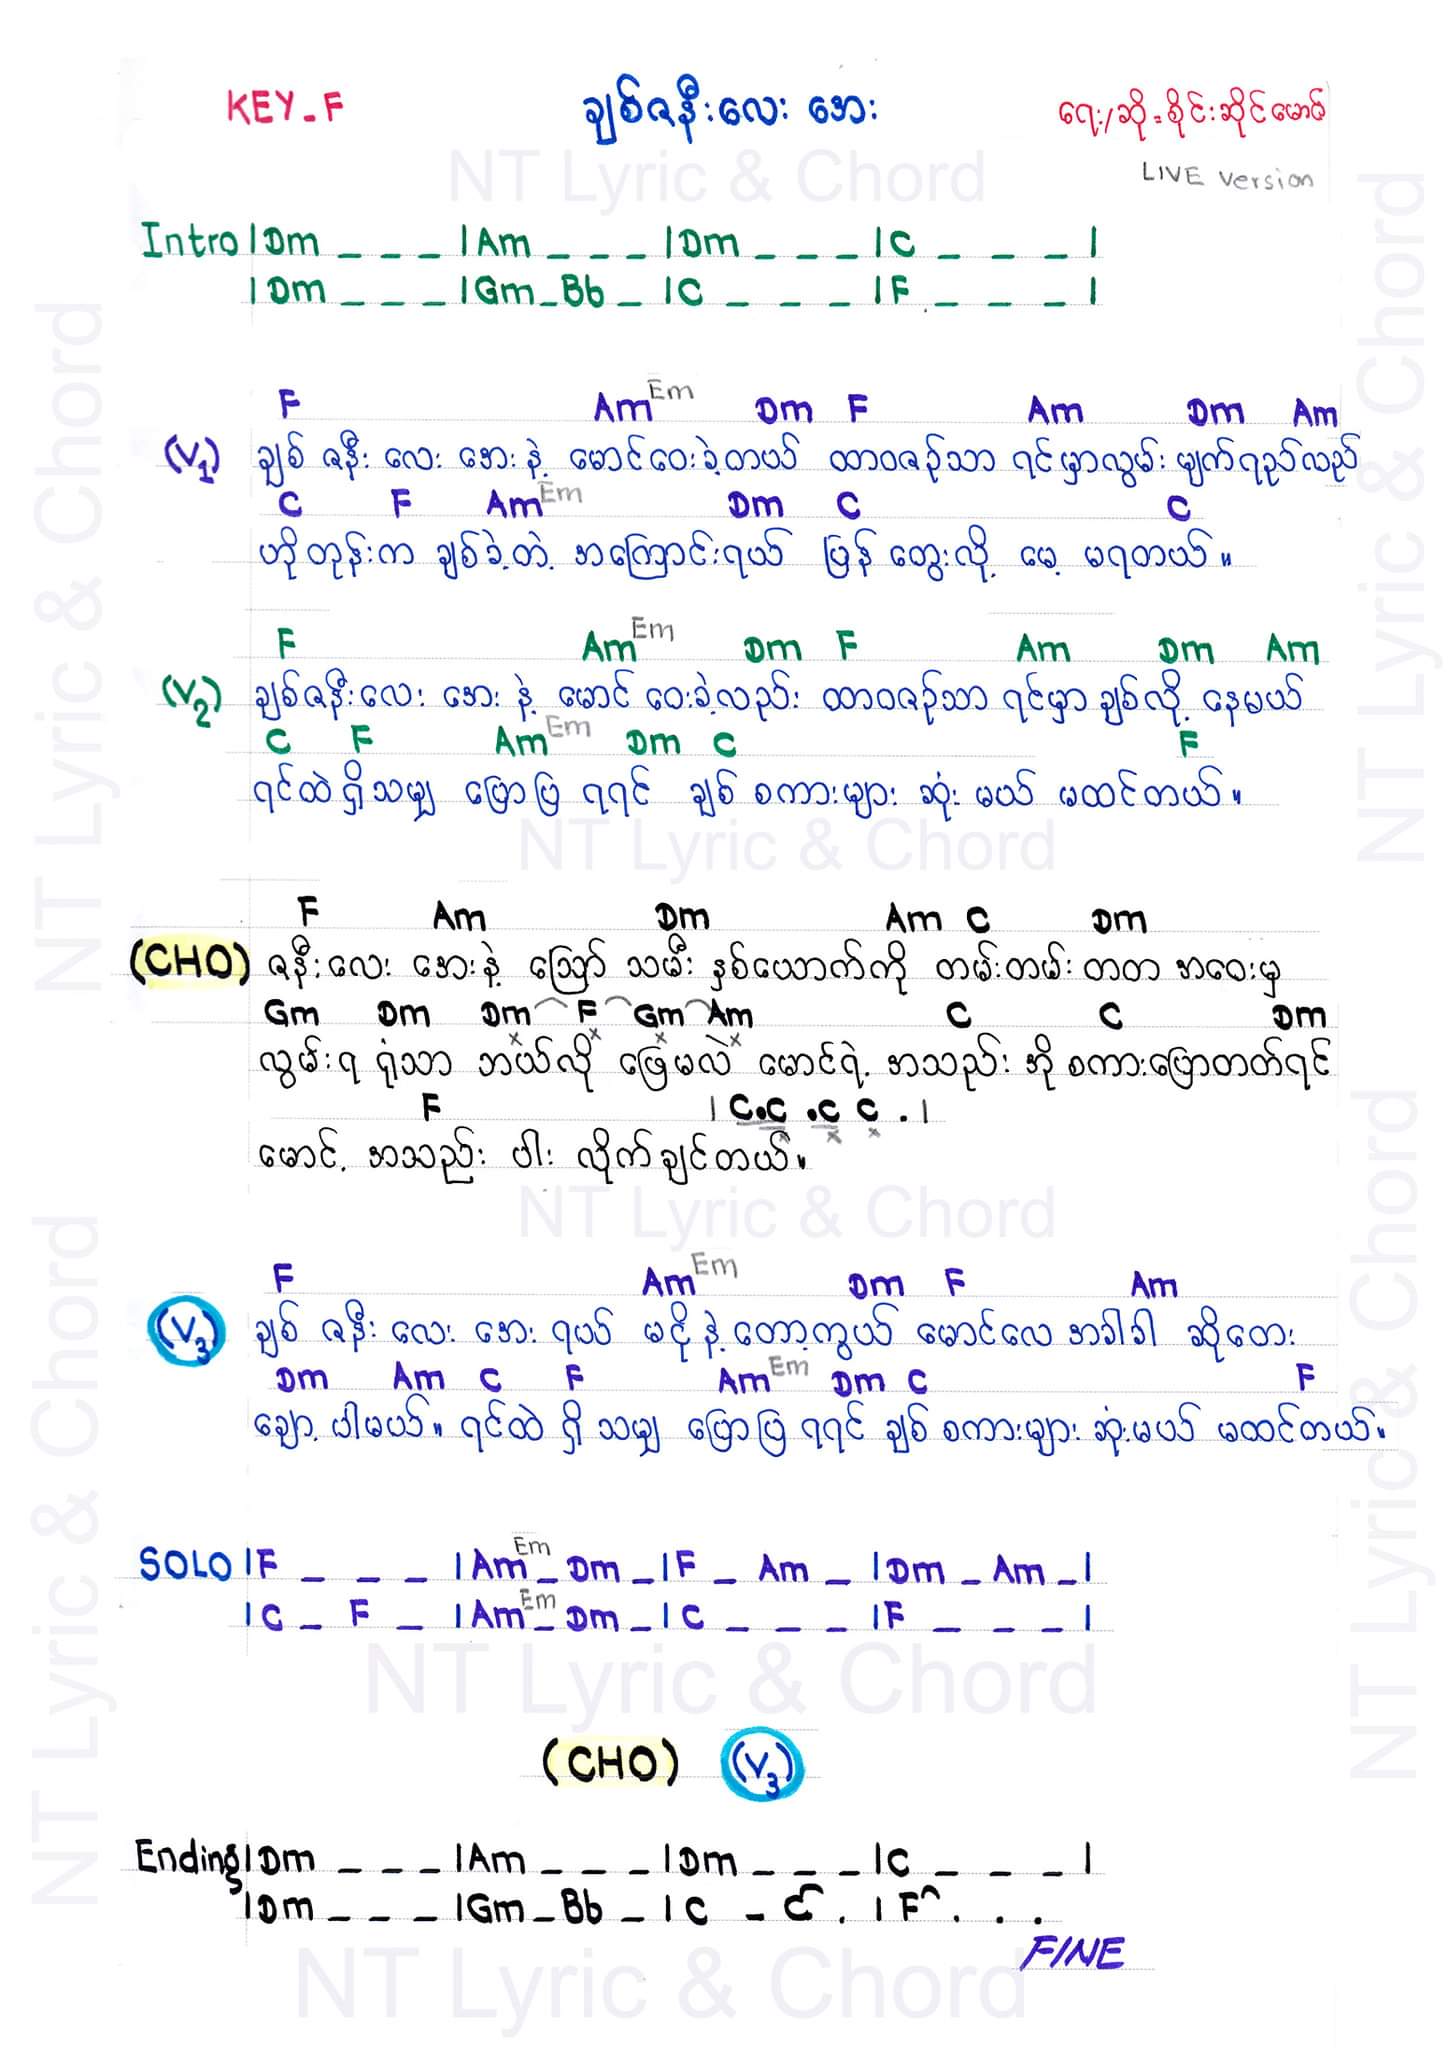 KEY_F ချစ်ဇနီးလေး အေး ရေး/ဆို = စိုင်းဆိုင်မောဝ်
NT Lyric & Chord
LIVE version
Intro |Dm _ _ _ |Am _ _ _ |Dm _ _ _ |C _ _ _ |
|Dm _ _ _ |Gm _ Bb _ |C _ _ _ |F _ _ _ |
F Am Em Dm F Am Dm Am
(V1) ချစ် ဇနီး လေး အေး နဲ့ မောင်ဝေးခဲ့တယ် ထာဝစဉ်သာ ရင်မှာလွမ်း မျက်ရည်လည်
C F Am Em Dm C C
ဟိုတုန်းက ချစ်ခဲ့တဲ့ အကြောင်းရယ် ပြန် တွေးလို့ မေ့ မရတယ်။
F Am Em Dm F Am Dm Am
(V2) ချစ်ဇနီးလေး အေး နဲ့ မောင် ဝေးခဲ့လည်း ထာဝစဉ်သာ ရင်မှာ ချစ်လို့ နေမယ်
C F Am Em Dm C F
ရင်ထဲ ရှိသမျှ ပြောပြ ရရင် ချစ် စကားများ ဆုံး မယ် မထင်တယ်။
NT Lyric & Chord
F Am Dm Am C Dm
(CHO) ဇနီးလေး အေးနဲ့ သြော် သမီး နှစ်ယောက်ကို တမ်းတမ်း တတ အဝေးမှ
Gm Dm Dm F Gm Am C C Dm
လွမ်းရ ရုံသာ ဘယ်လို ဖြေမလဲ မောင်ရဲ့ အသည်း အို စကားပြောတတ်ရင်
F | C.C .C C . |
မောင့် အသည်း ပါး လိုက်ချင်တယ်။
NT Lyric & Chord
F Am Em Dm F Am
(V3) ချစ် ဇနီး လေး အေး ရယ် မငို နဲ့ တော့ကွယ် မောင်လေ အခါခါ ဆိုတေး
Dm Am C F Am Em Dm C F
ချော့ ပါမယ်။ ရင်ထဲ ရှိ သမျှ ပြောပြ ရရင် ချစ် စကားများ ဆုံးမယ် မထင်တယ်။
SOLO |F _ _ _ |Am Em _ Dm _ |F _ Am _ |Dm _ Am _ |
|C _ F _ |Am Em _ Dm _ |C _ _ _ |F _ _ _ |
NT Lyric & Chord
(CHO) (V3)
Ending |Dm _ _ _ |Am _ _ _ |Dm _ _ _ |C _ _ _ |
|Dm _ _ _ |Gm _ Bb _ |C _ C . |F . . .
FINE
NT Lyric & Chord
NT Lyric & Chord
NT Lyric & Chord
NT Lyric & Chord
NT Lyric & Chord